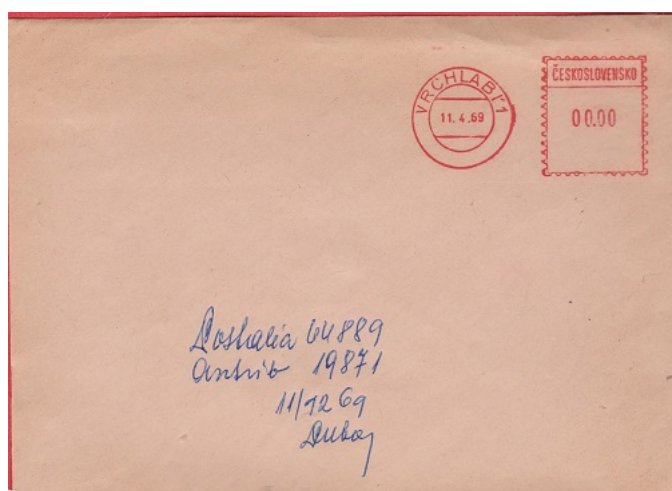 VRCHLABÍ 1
11.4.69
ČESKOSLOVENSKO
00.00
Postalia 64889
19871
11/12 69